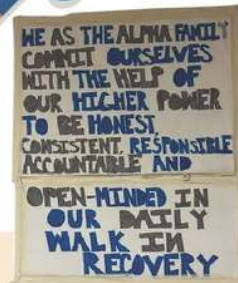 WE AS THE ALPHA FAMILY
COMMIT OURSELVES
WITH THE HELP OF
OUR HIGHER POWER
TO BE HONEST,
CONSISTENT, RESPONSIBLE
ACCOUNTABLE AND
OPEN-MINDED IN
OUR DAILY
WALK IN
RECOVERY